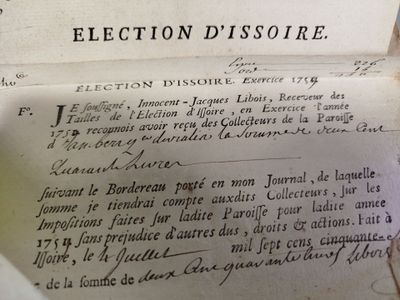 ELECTION D'ISSOIRE.
ELECTION D'ISSOIRE. Exercice 1754
F°. JE soussigné, Innocent-Jacques Libois, Receveur des
Tailles de l'Election d'Issoire, en Exercice l'année
1754 reconnois avoir reçu des Collecteurs de la Paroisse
d' la somme de deux Cent
Quarante Livres
suivant le Bordereau porté en mon Journal, de laquelle
somme je tiendrai compte ausdits Collecteurs, sur les
Impositions faites sur ladite Paroisse pour ladite année
1754 sans prejudice d'autres dus, droits & actions. Fait à
Issoire, le 4 Juillet mil sept cens cinquante-
de la somme de deux Cent quarante Livres Libois